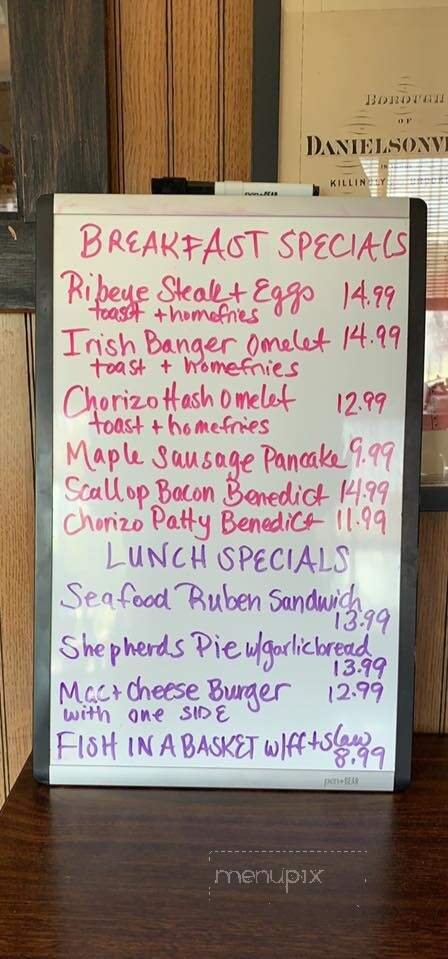 BOROUGH
OF
DANIELSONV
IN
KILLINGLY
BREAKFAST SPECIALS
Ribeye Steak + Eggs 14.99
toast + homefries
Irish Banger Omelet 14.99
toast + homefries
Chorizo Hash Omelet 12.99
toast + homefries
Maple Sausage Pancake 9.99
Scallop Bacon Benedict 14.99
Chorizo Patty Benedict 11.99
LUNCH SPECIALS
Seafood Ruben Sandwich
13.99
Shepherds Pie w/garlic bread
13.99
Mac + Cheese Burger 12.99
with one SIDE
FISH IN A BASKET w/ff + slaw
8.99
pen+GEAR
menupix